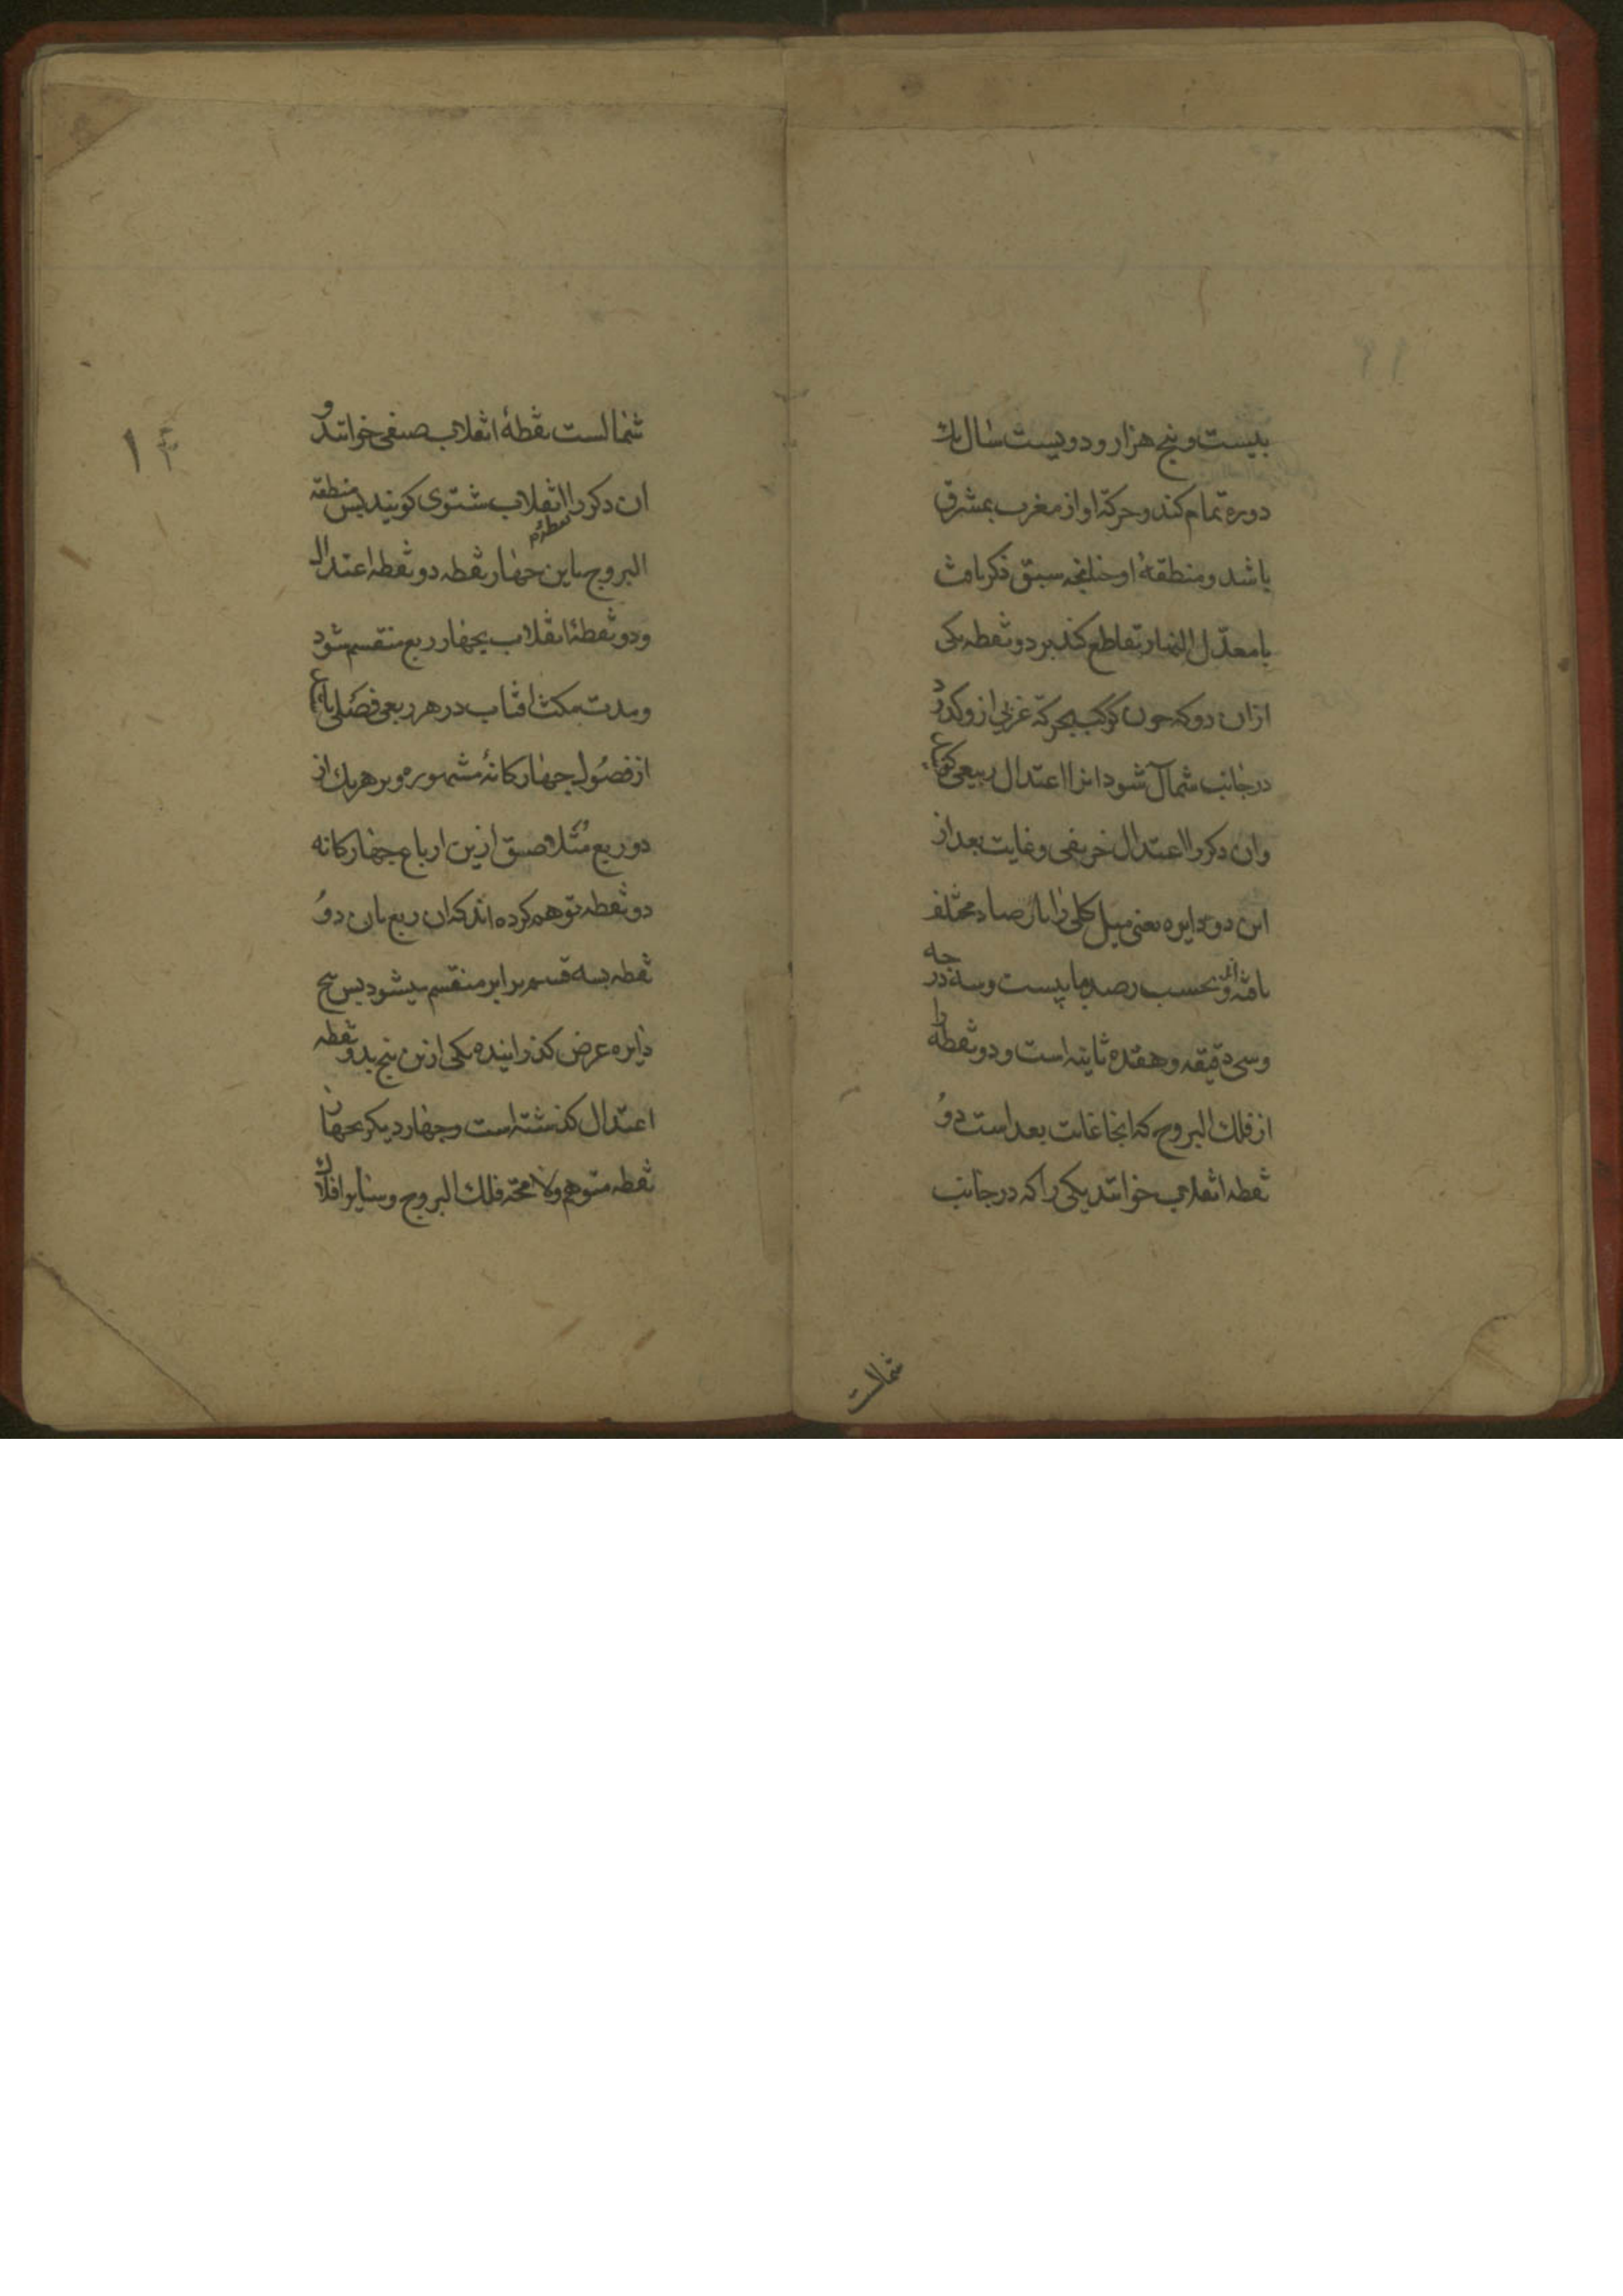 بیست و پنج هزار و دویست سال یک
دوره تمام کند و حرکة او از مغرب بمشرق
باشد و منطقۀ او چنانچه سبق ذکر یافت
با معدّل النهار تقاطع کند بر دو نقطه یکی
ازان دو که چون کوکب بحرکة غربی ازو کذرد
در جانب شمال شود انرا اعتدال ربیعی کویند
وان دکر را اعتدال خریفی و غایت بعد از
این دو دایره یعنی میل کلی را بارصاد مختلف
یافته اند و بحسب رصد ما بیست و سه درجه
و سی دقیقه و هفده ثانیه است و دو نقطه را
از فلك البروج که انجا غایت بعد است دو
نقطه انقلاب خوانند یکی را که در جانب
شمالست
شمالست نقطۀ انقلاب صیفی خوانند و
ان دکر را انقلاب شتوی کویند پس منطقه
البروج باین چهار نقطه دو نقطه اعتدال
و دو نقطۀ انقلاب بچهار ربع منقسم شود
و مدت مکث افتاب در هر ربعی فصلی باشد
از فصول چهارکانۀ مشهوره و بر هر یك از
دو ربع متلاصق ازین ارباع چهارکانه
دو نقطه توهم کرده اند که ان ربع بان دو
نقطه بسه قسم برابر منقسم میشود پس پنج
دایره عرض کذرانیده یکی ازین پنج بدو نقطه
اعتدال کذشته است و چهار دیکر بچهار
نقطه متوهم ولا محٰة فلك البروج و سایر افلاك
۱۲